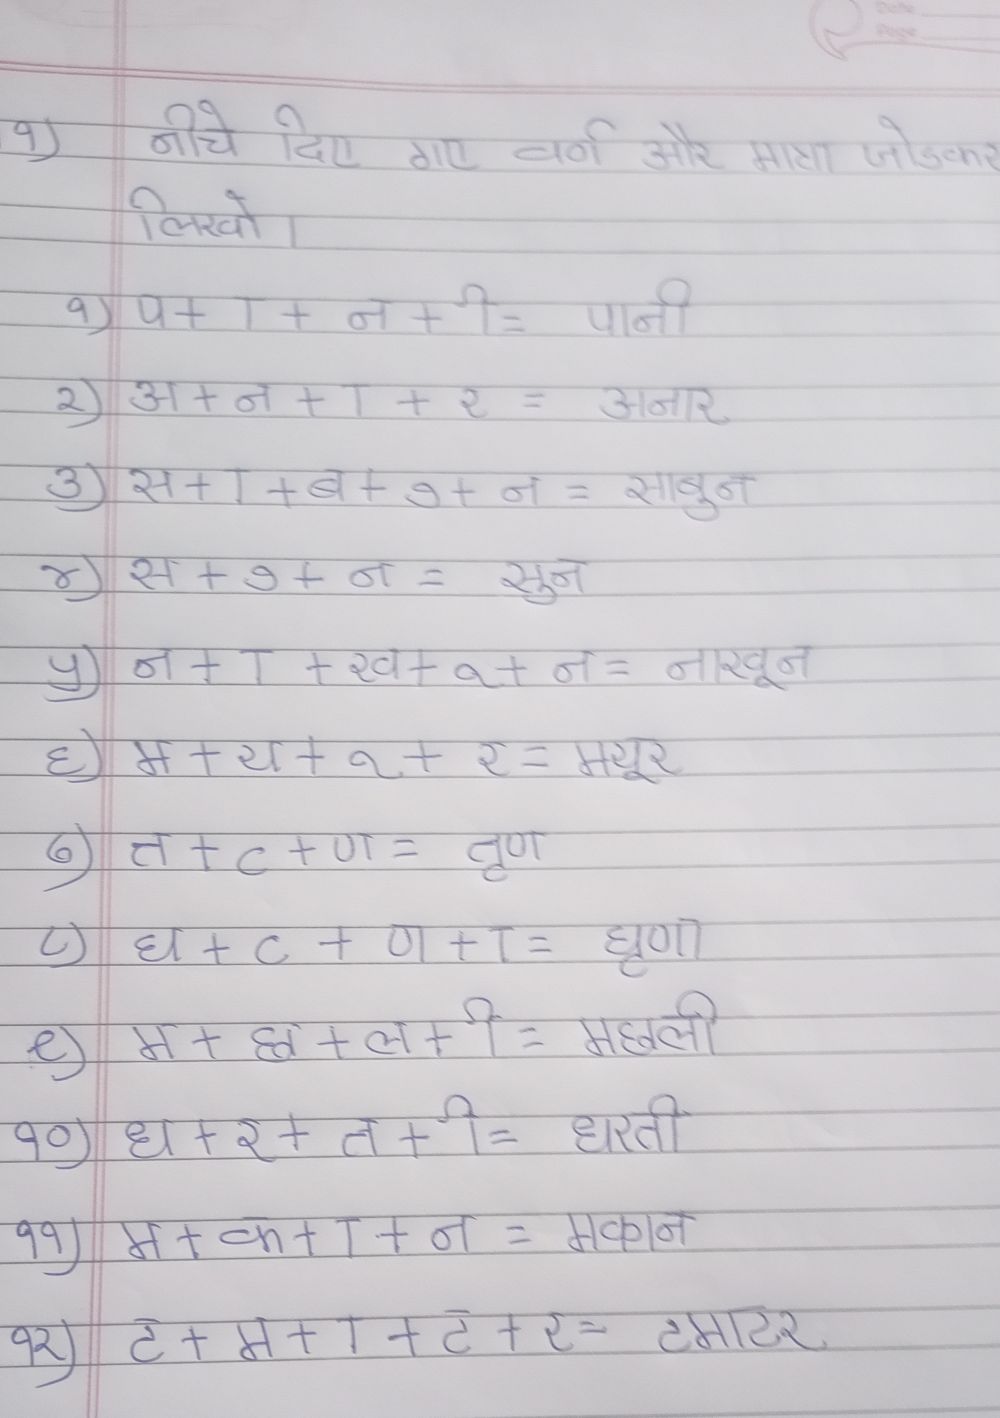 १) नीचे दिए गए वर्ण और मात्रा जोडकर
लिखो।
१) प + ा + न + ी = पानी
२) अ + न + ा + र = अनार
३) स + ा + ब + ु + न = साबुन
४) स + ु + न = सुन
५) न + ा + ख + ू + न = नाखून
६) म + य + ू + र = मयूर
७) त + ृ + ण = तृण
८) घ + ृ + ण + ा = घृणा
९) म + छ + ल + ी = मछली
१०) ध + र + त + ी = धरती
११) म + क + ा + न = मकान
१२) ट + म + ा + ट + र = टमाटर